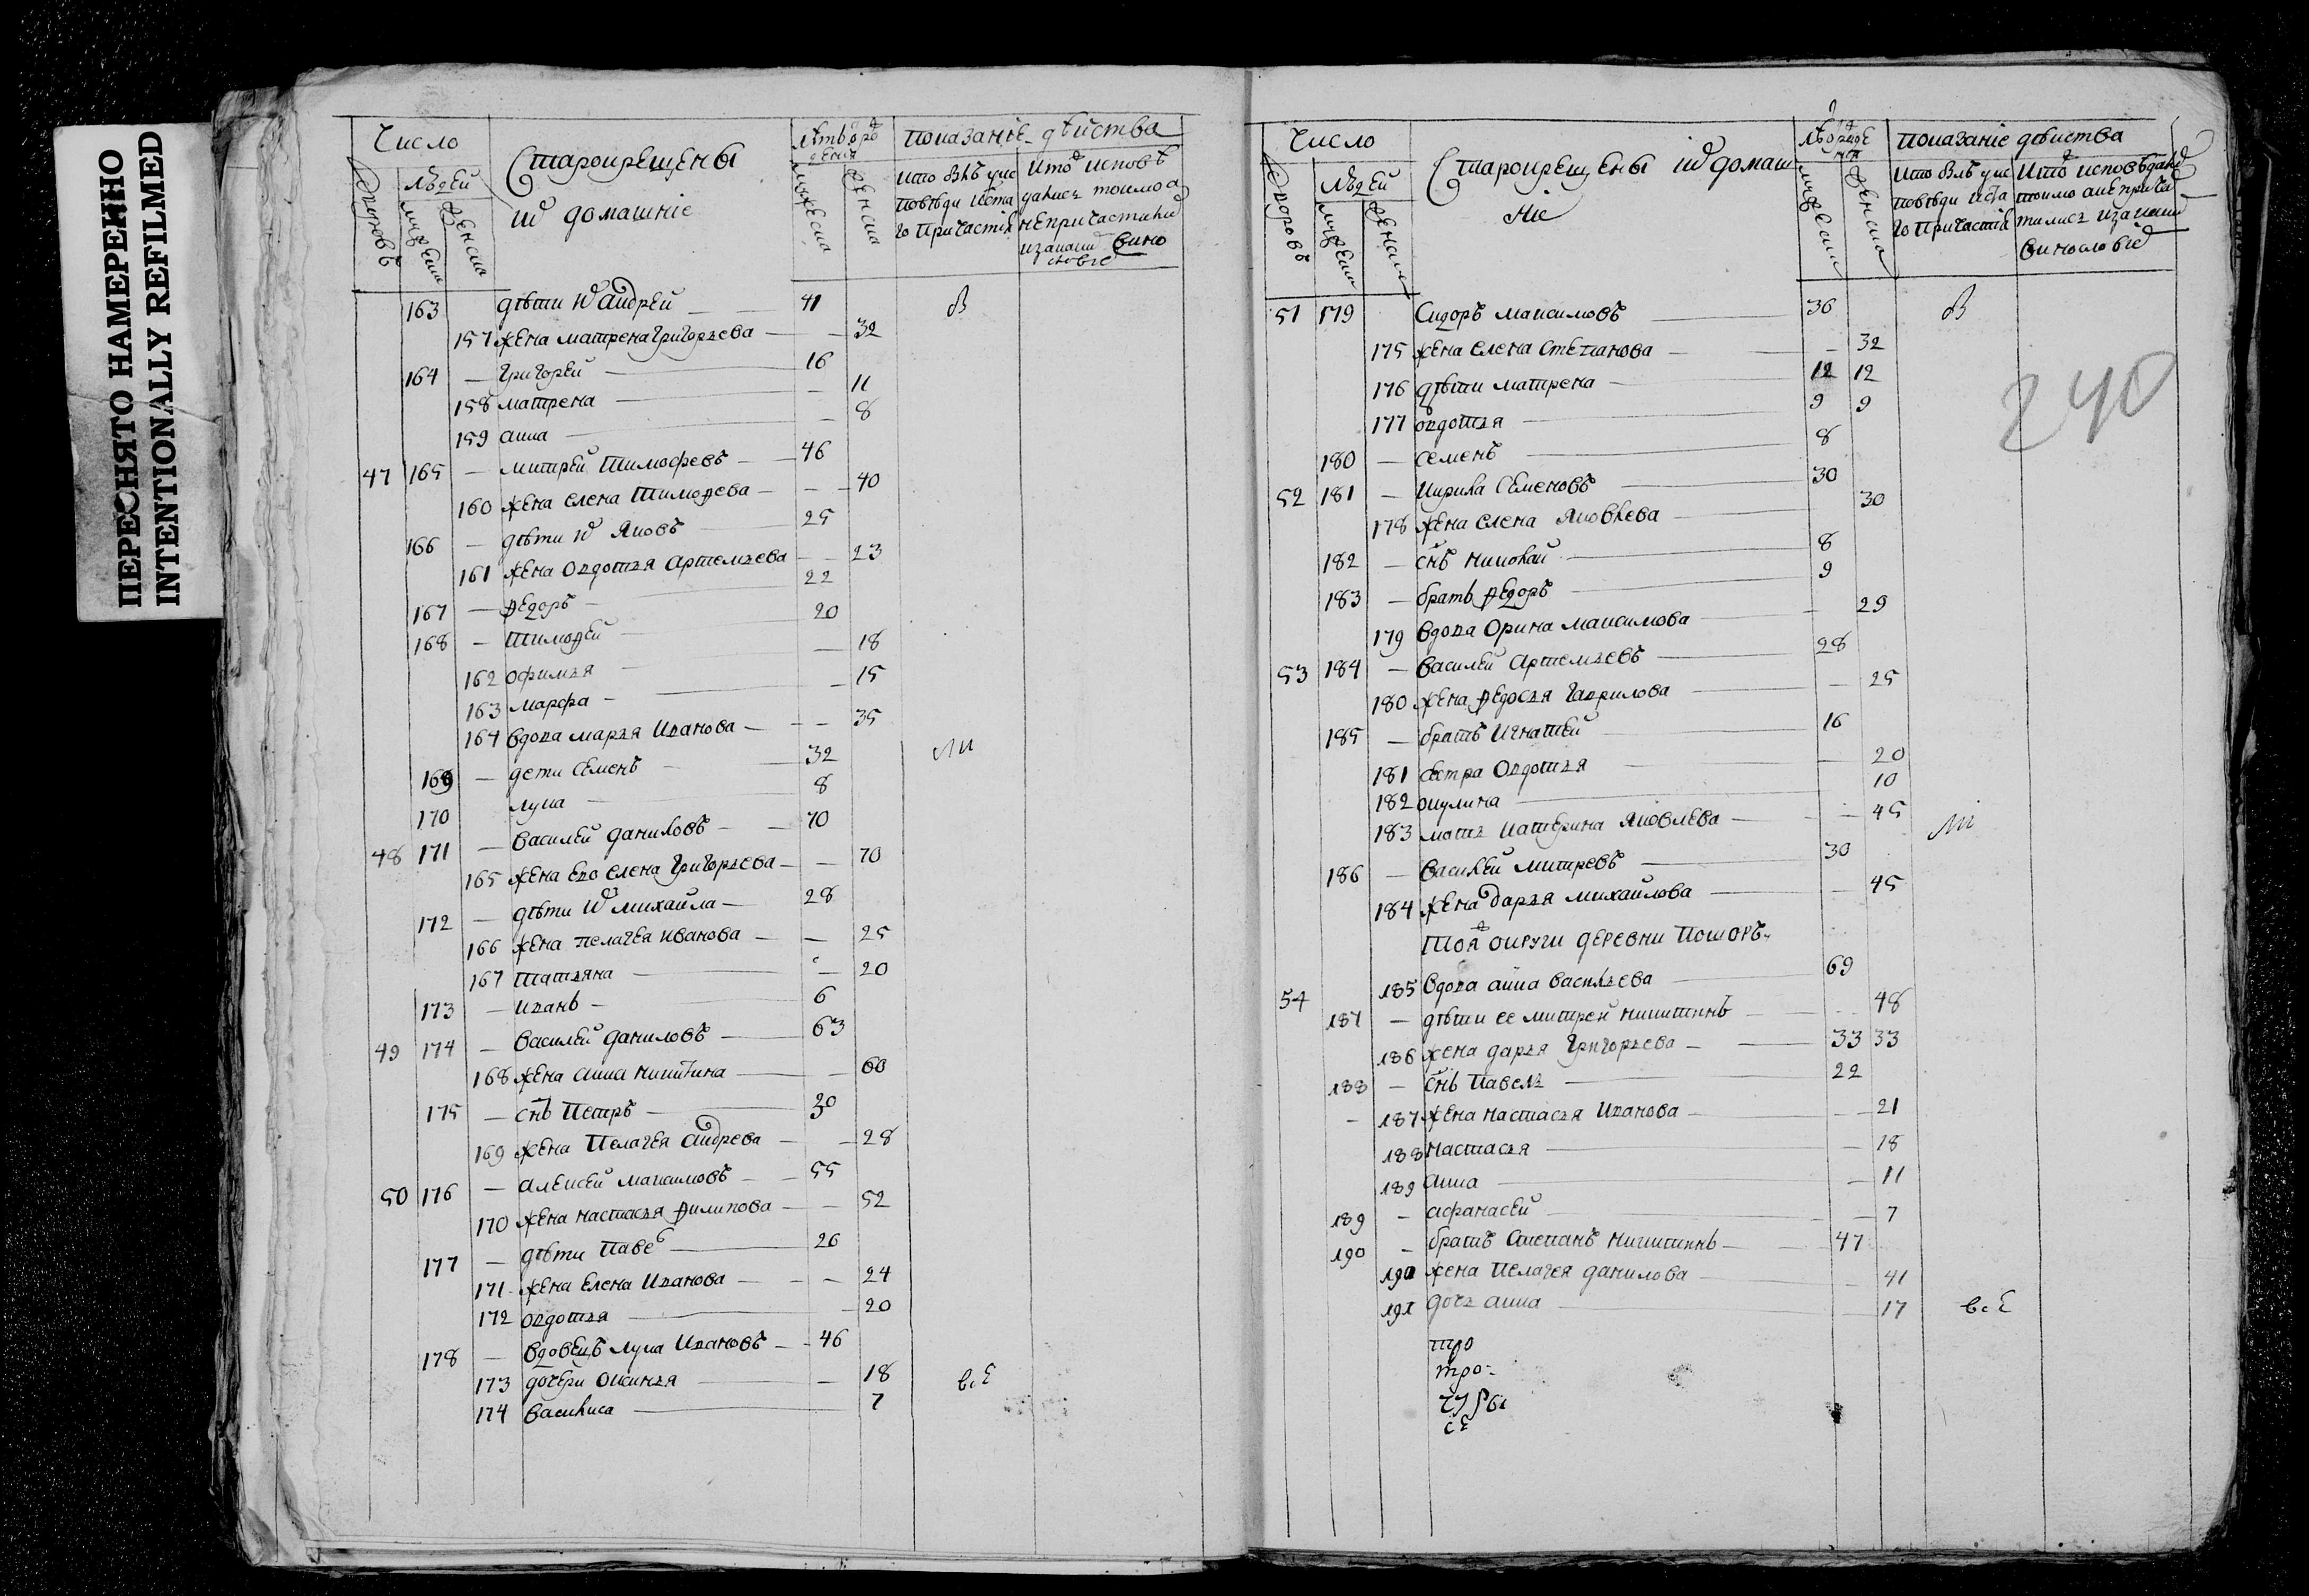 ПЕРЕСНЯТО НАМЕРЕННО
INTENTIONALLY REFILMED
Число
Старокрещены
показание дѣйства
Людей
Дворовъ
мужеска
женска
и домашніе
мужеска
женска
163 дѣти и Андрей 41 в
157 жена матрена Григорьева 32
164 Григорей 16
158 матрена 11
159 анна 8
47 165 митрей Тимофеевъ 46
160 жена елена Тимофеева 40
166 дѣти и Яковъ 25
161 жена Овдотья Артемьева 23
167 Федоръ 22
168 Тимофей 20
162 офимья 18
163 марфа 15
164 вдова марья Иванова 35
169 дети Семенъ 32 ли
170 лука 8
48 171 Василей даниловъ 70
165 жена ево елена Григорьева 70
172 дѣти и михайла 28
166 жена пелагея иванова 25
167 татьяна 20
173 иванъ 6
49 174 Василей даниловъ 63
168 жена анна никитина 60
175 снъ Петръ 30
169 жена Пелагея андреева 28
50 176 алексей максимовъ 55
170 жена настасья филипова 52
177 дѣти Павел 26
171 жена елена иванова 24
172 овдотья 20
178 вдовецъ лука ивановъ 46
173 дочери оксинья 18 все
174 василиса 7
Число
Старокрещены и домаш
ніе
показаніе дѣиства
Людей
Дворовъ
мужеска
женска
мужеска
женска
240
51 179 Сидоръ максимовъ 36 в
175 жена елена Степанова 32
176 дѣти матрена 12 12
177 овдотья 9 9
180 Семенъ 8
52 181 Кирила Семеновъ 30
178 жена елена Яковлева 30
182 снъ николай 8
183 братъ Федоръ 9
179 вдова Орина максимова 29
53 184 василей артемьевъ 28
180 жена Федосья гаврилова 25
185 братъ игнатей 16
181 сестра Овдотья 20
182 окулина 10
183 мать катерина Яковлева 45 ли
186 василей митревъ 30
184 жена дарья михайлова 45
той округи деревни
54 185 вдова анна васильева 69
187 дѣти ее митрей никитинъ 48
186 жена дарья григорьева 33 33
188 снъ Павелъ 22
187 жена настасья иванова 21
188 настасья 18
189 анна 11
189 афанасей 7
190 братъ Степанъ никитинъ 47
190 жена Пелагея данилова 41
191 дочь анна 17 все
тро
тро
се